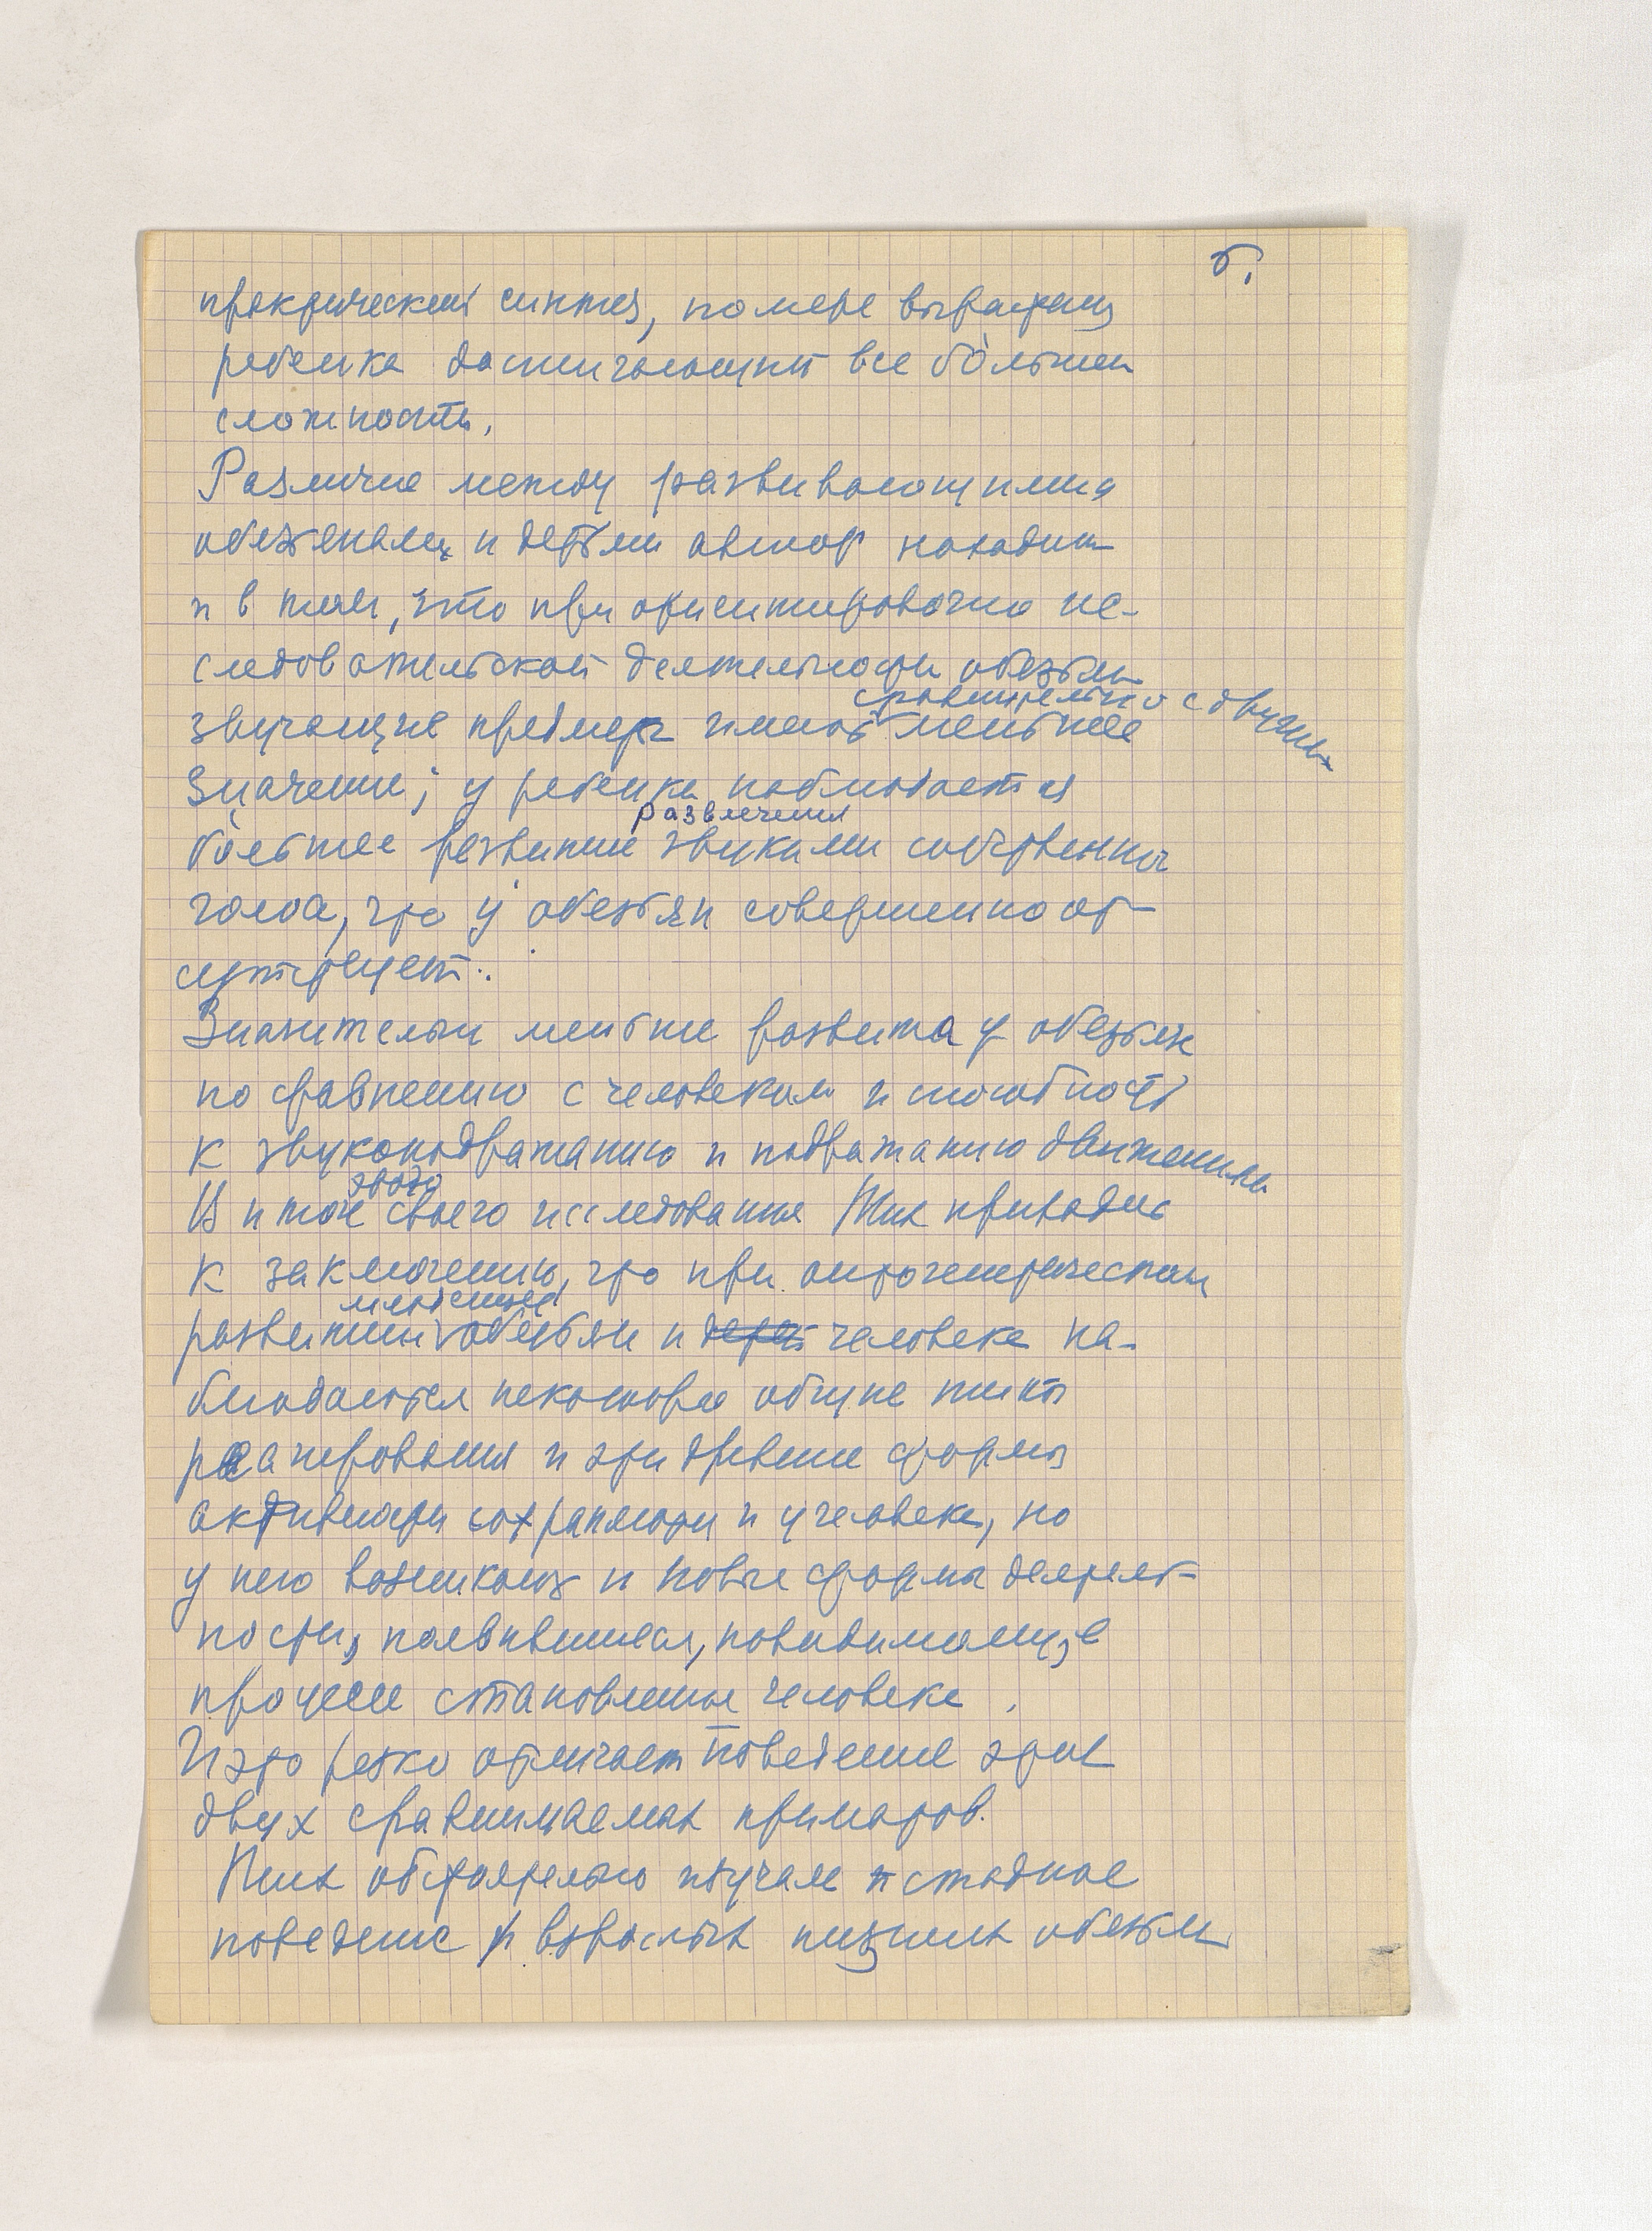 5.
практический синтез, по мере вырастания
ребенка достигающий все бо́льшей
сложности.
Различие между развивающимися
обезьянами и детьми автор находит
и в том, что при ориентировочно ис-
следовательской деятельности обезьян
сравнительно с двуши
звучащие предметы имеют меньшее
значение; у ребенка наблюдается
развлечения
бо́льшее развитие звуками собственного
голоса, что у обезьян совершенно от-
сутствует.
Значительно меньше развита у обезьян
по сравнению с человеком и способность
к звукоподражанию и подражанию движениям
этого
В итоге своего исследования Тих приходит
к заключению, что при онтогенетическом
младенцев
развитии обезьян и детей человека на-
блюдаются некоторые общие типы
реагирования и эти древние формы
активности сохраняются и у человека, но
у него возникают и новые формы деятель-
ности, появившиеся, повидимому, в
процессе становления человека.
И это резко отличает поведение этих
двух сравниваемых приматов.
Тих обстоятельно изучала и стадное
поведение и взрослых низших обезьян